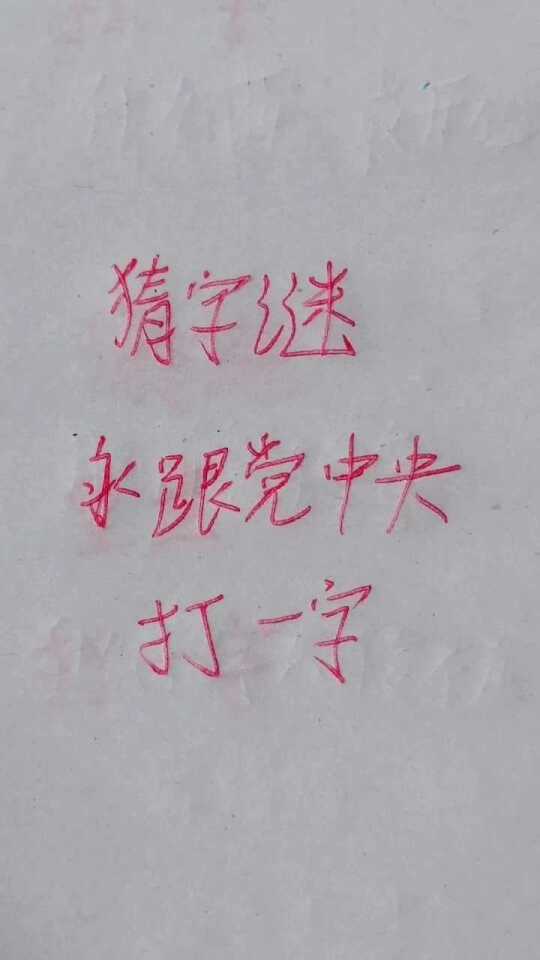 猜字谜
永跟党中央
打一字